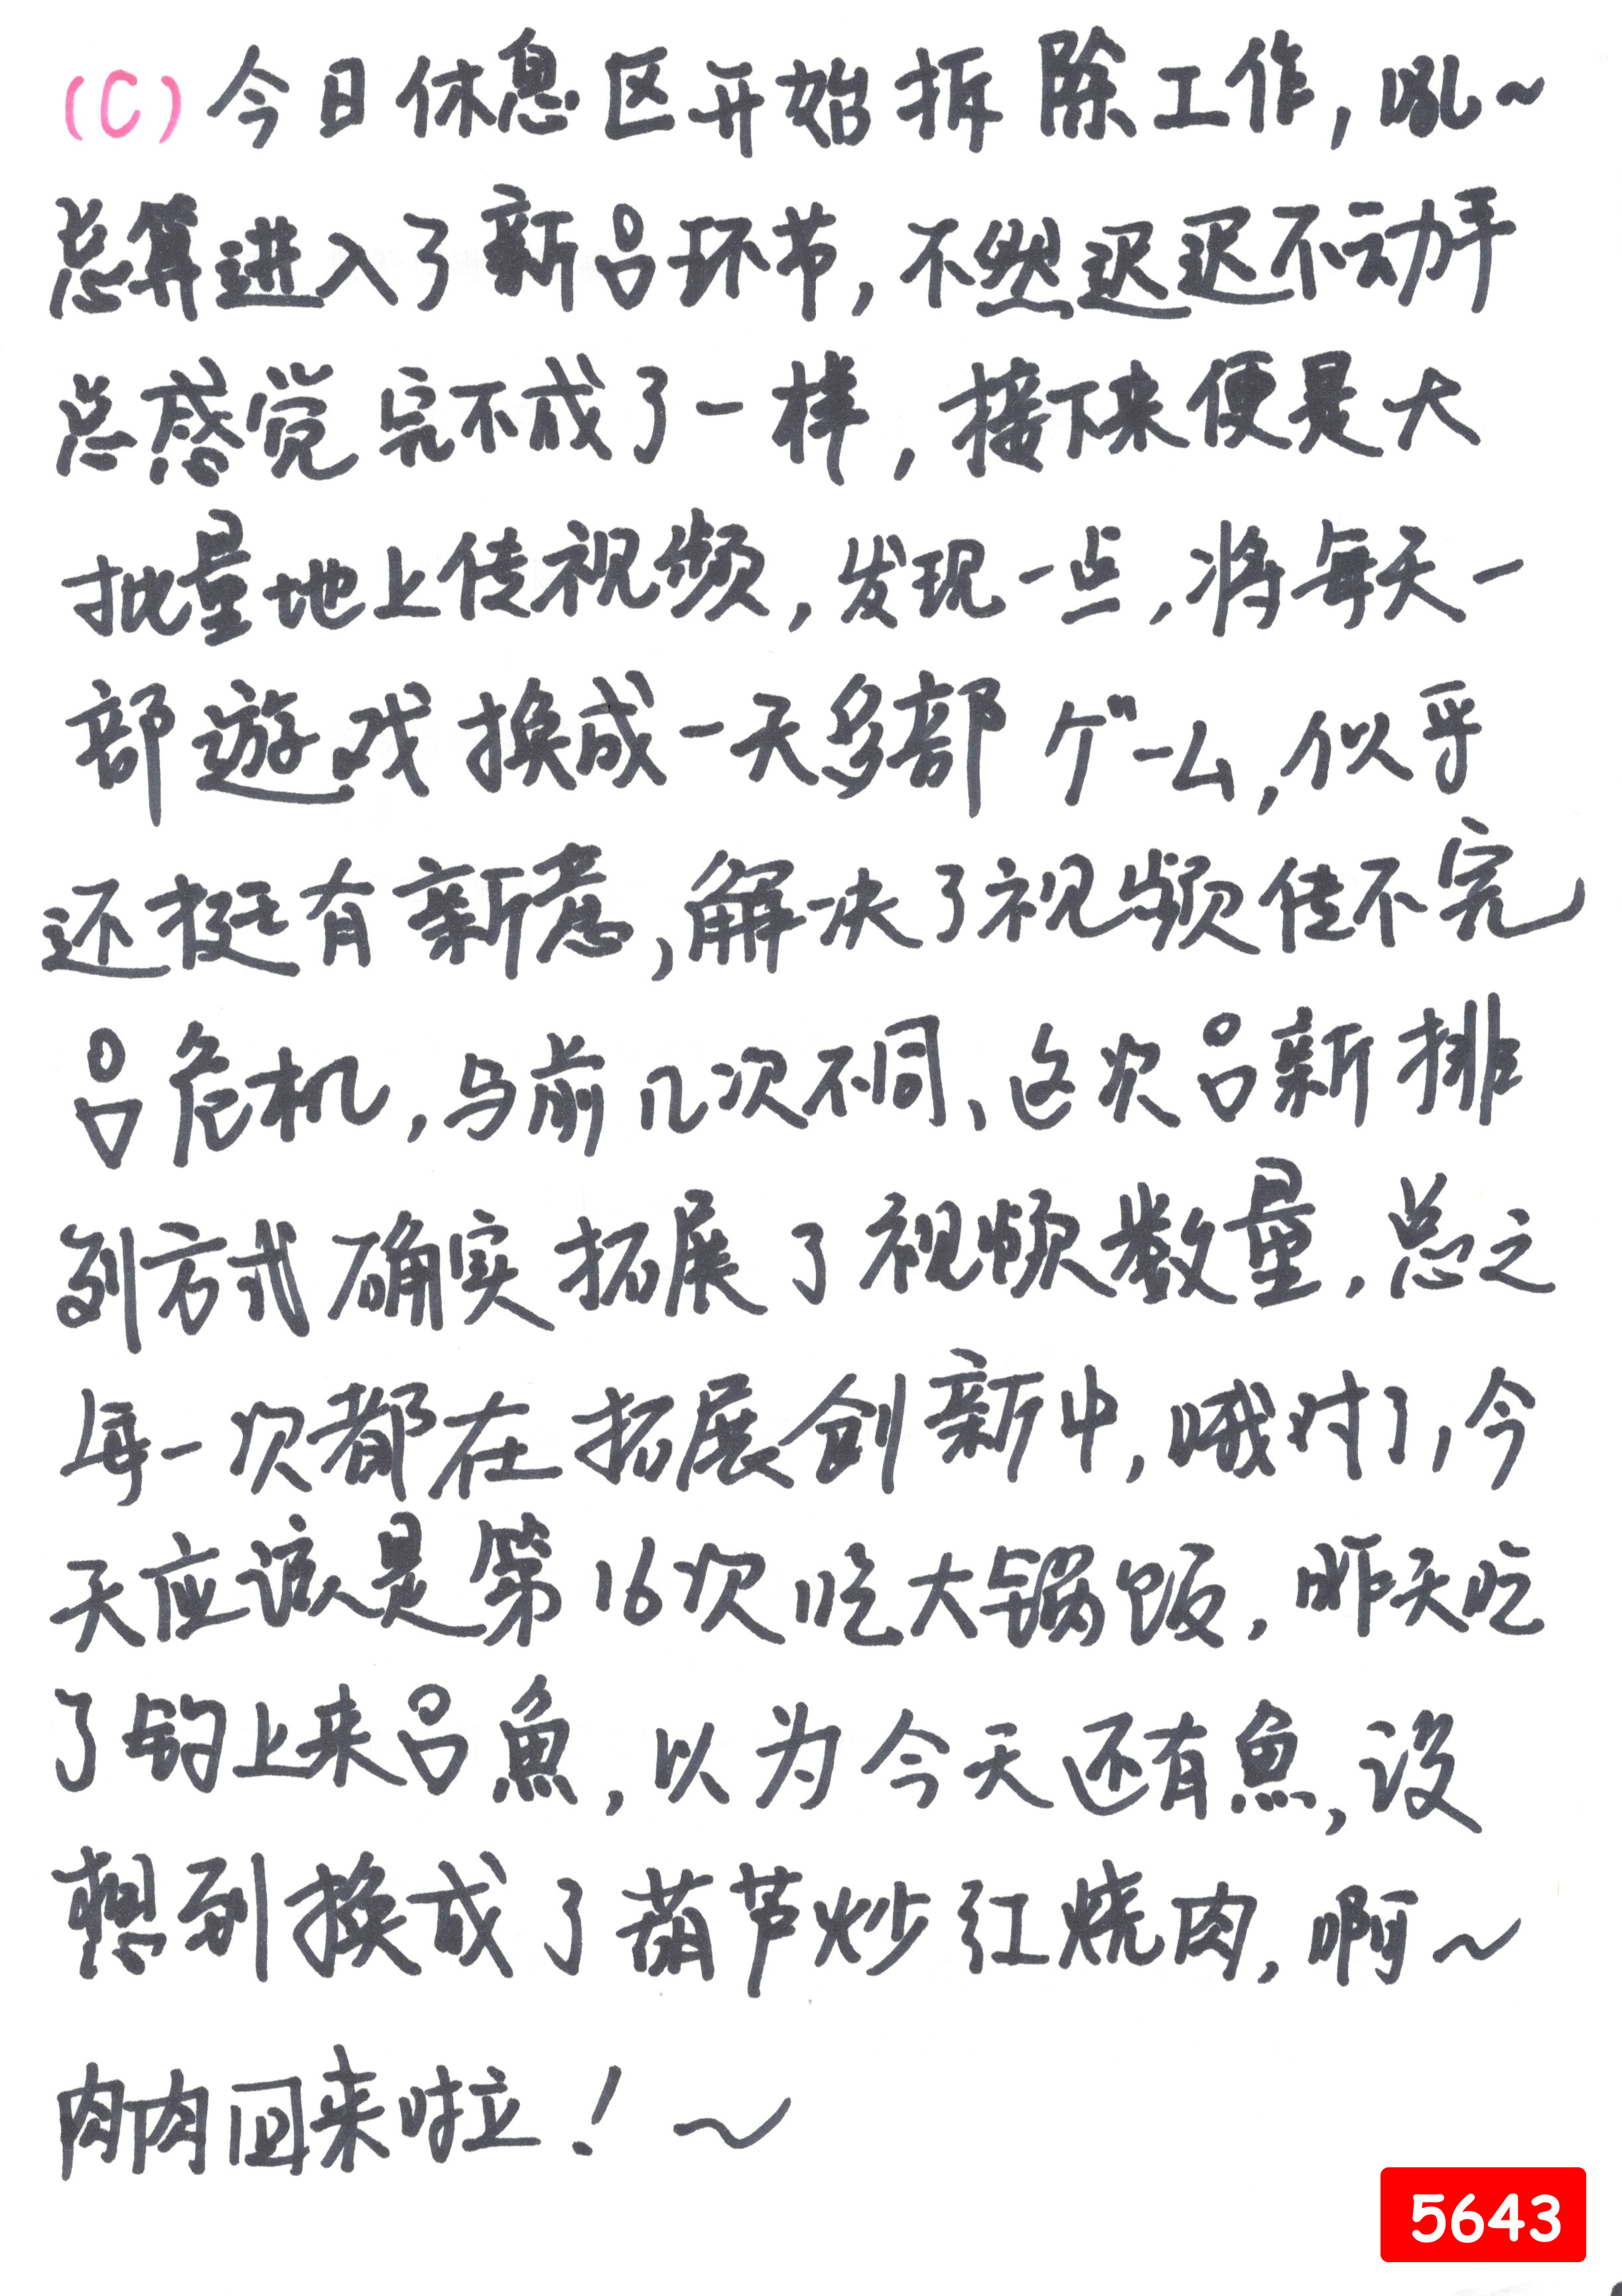 (C)今日休息区开始拆除工作,吼~
总算进入了新吕环节,不然迟迟不动手
总感觉完不成了一样,接下来便是大
批量地上传视频,发现一点,将每天一
部遊戏换成一天多部ゲーム,似乎
还挺有新意,解决了视频传不完
吕危机,与前几次不同、这次吕新排
列方式确实拓展了视频数量,总之
每一次都在拓展创新中,哦对了,今
天应该是第16次吃大锅饭,昨天吃
了钓上来吕魚,以为今天还有魚,没
想到换成了葫芦炒红烧肉,啊~
肉肉回来啦!~
5643